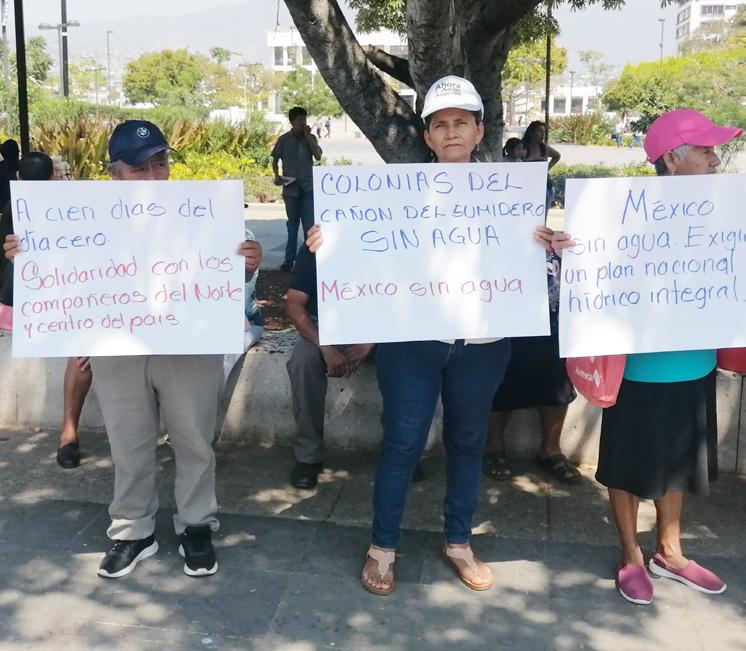 A cien dias del
dia cero.
Solidaridad con los
compañeros del Norte
y centro del pais
Ahora
COLONIAS DEL
CAÑON DEL SUMIDERO
SIN AGUA
México sin agua
México
sin agua. Exigi
un plan nacional
hídrico integral.